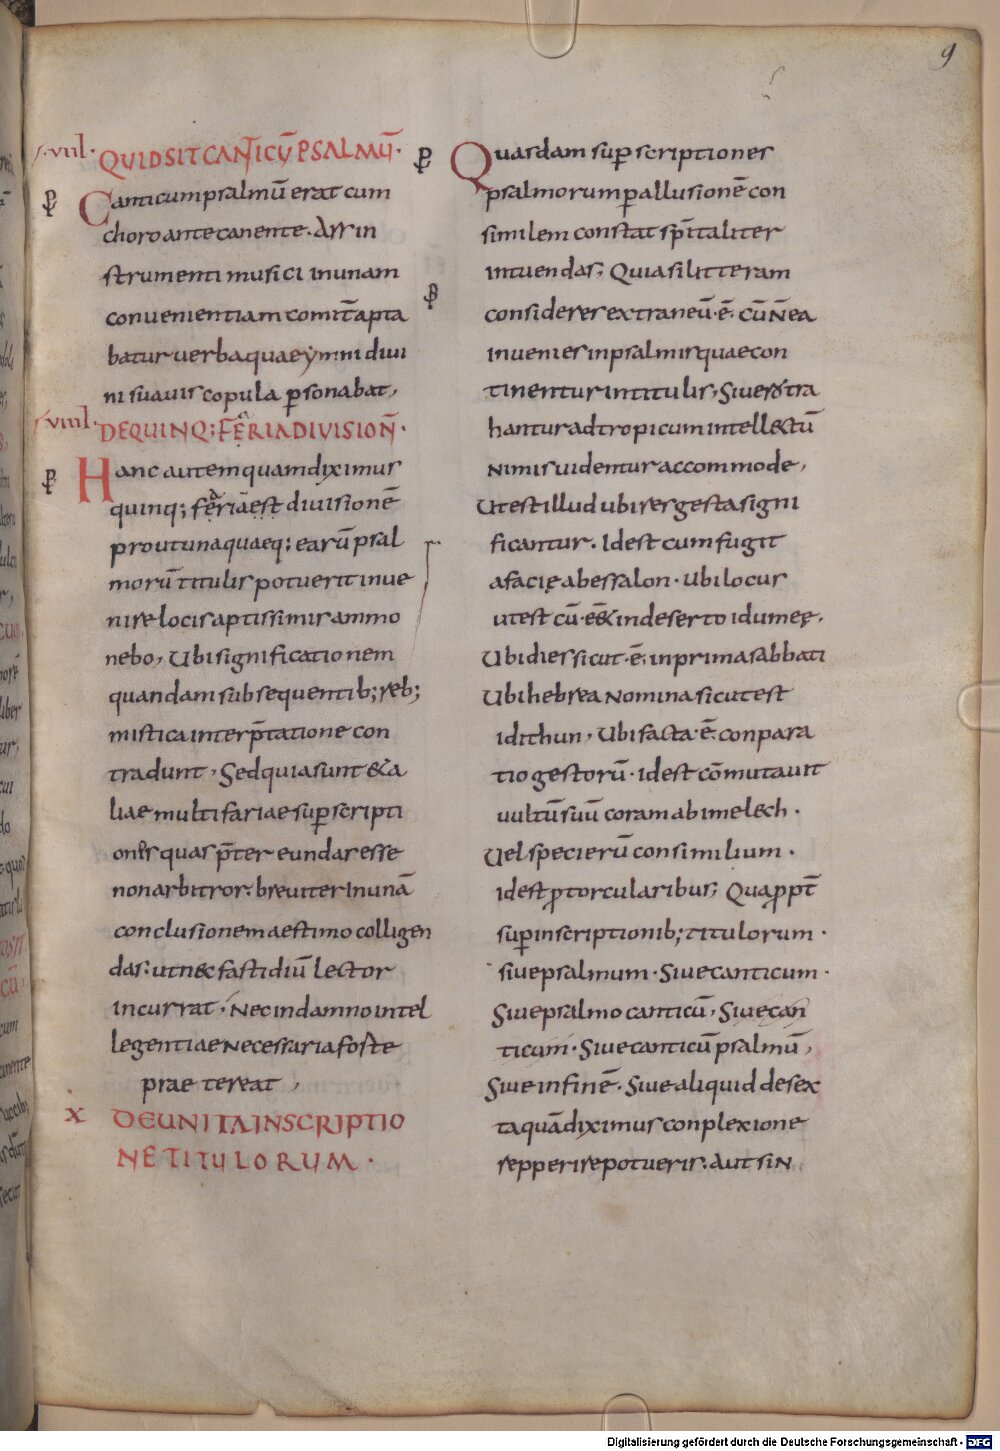 9
.viii. QUID SIT CANTICŪ PSALMŪ.
Canticum psalmū erat cum
choro ante canente. Aſſ in
strumenti musici in unam
convenientiam comit̄ apta
batur verba quae ymni divi
ni suavis copula p̱sonabat,
.viiii. DE QUINQ; FĘRIA DIVISION̄.
Hanc autem quam diximus
quinq; fęria est divisionē
prout unaquaeq; earū psal
morū titulis potuerit inve
nire locis aptissimis ammo
nebo, Ubi significationem
quandam subsequentib; reb;
mistica interp̄tatione con
tradunt, Sed quia sunt & a
liae multifariae sup̱ scripti
ones quas p̄ter eundas esse
non arbitror. breviter in unā
conclusionem aestimo colligen
das: ut nec fastidiū lector
incurrat, Nec in damno intel
legentiae necessaria fo ste
prae tereat,
X DE UNITA INSCRIPTIO
NE TITULORUM.
Quasdam sup̱ scriptiones
psalmorum p̱ allusionē con
similem constat sp̄italiter
intuendas; Quia si litteram
consideres extraneū .ē. cū N̄ ea
invenies in psalmis quae con
tinentur in titulis, Si v& tra
hantur ad tropicum intellectū
nimis videntur accommode,
Ut est illud ubi res gesta signi
ficantur. Idest cum fugit
a facię abessalon. Ubi locus
ut est cū .ē& in deserto idumeę.
Ubi dies sicut .ē. in prima sabbati
Ubi hebrea nomina sicut est
idithun, Ubi facta .ē. conpara
tio gestorū. idest cōmutavit
vultū suū coram abimelech.
Vel specierū consimilium.
idest p̱ torcularibus; Quap̱pt̄
sup̱ inscriptionib; titulorum.
sive psalmum. Sive canticum.
Sive psalmo canticū, Sive can
ticum. Sive canticū psalmū,
Sive in finē. Sive aliquid de sex
ta quā diximus conplexione
repperire potueris. Aut sin
Digitalisierung gefördert durch die Deutsche Forschungsgemeinschaft - DFG